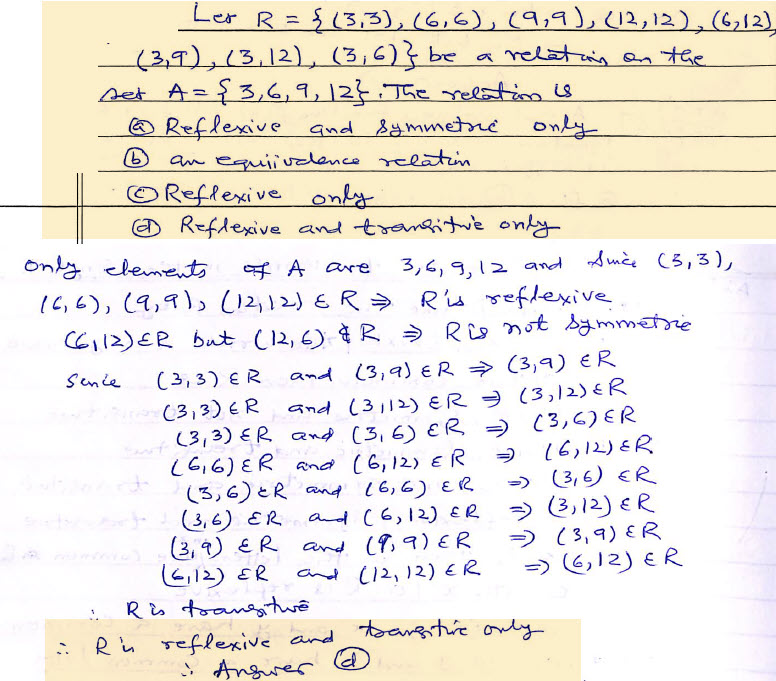 Let R = {(3,3), (6,6), (9,9), (12,12), (6,12),
(3,9), (3,12), (3,6)} be a relation on the
set A = {3,6,9,12}. The relation is
(a) Reflexive and symmetric only
(b) an equiivalence relation
(c) Reflexive only
(d) Reflexive and transitive only
only elements of A are 3,6,9,12 and since (3,3),
(6,6), (9,9), (12,12) ∈ R ⇒ R is reflexive
(6,12) ∈ R but (12,6) ∉ R ⇒ R is not symmetric
Since (3,3) ∈ R and (3,9) ∈ R ⇒ (3,9) ∈ R
(3,3) ∈ R and (3,12) ∈ R ⇒ (3,12) ∈ R
(3,3) ∈ R and (3,6) ∈ R ⇒ (3,6) ∈ R
(6,6) ∈ R and (6,12) ∈ R ⇒ (6,12) ∈ R
(3,6) ∈ R and (6,6) ∈ R ⇒ (3,6) ∈ R
(3,6) ∈ R and (6,12) ∈ R ⇒ (3,12) ∈ R
(3,9) ∈ R and (9,9) ∈ R ⇒ (3,9) ∈ R
(6,12) ∈ R and (12,12) ∈ R ⇒ (6,12) ∈ R
∴ R is transitive
∴ R is reflexive and transitive only
∴ Answer (d)